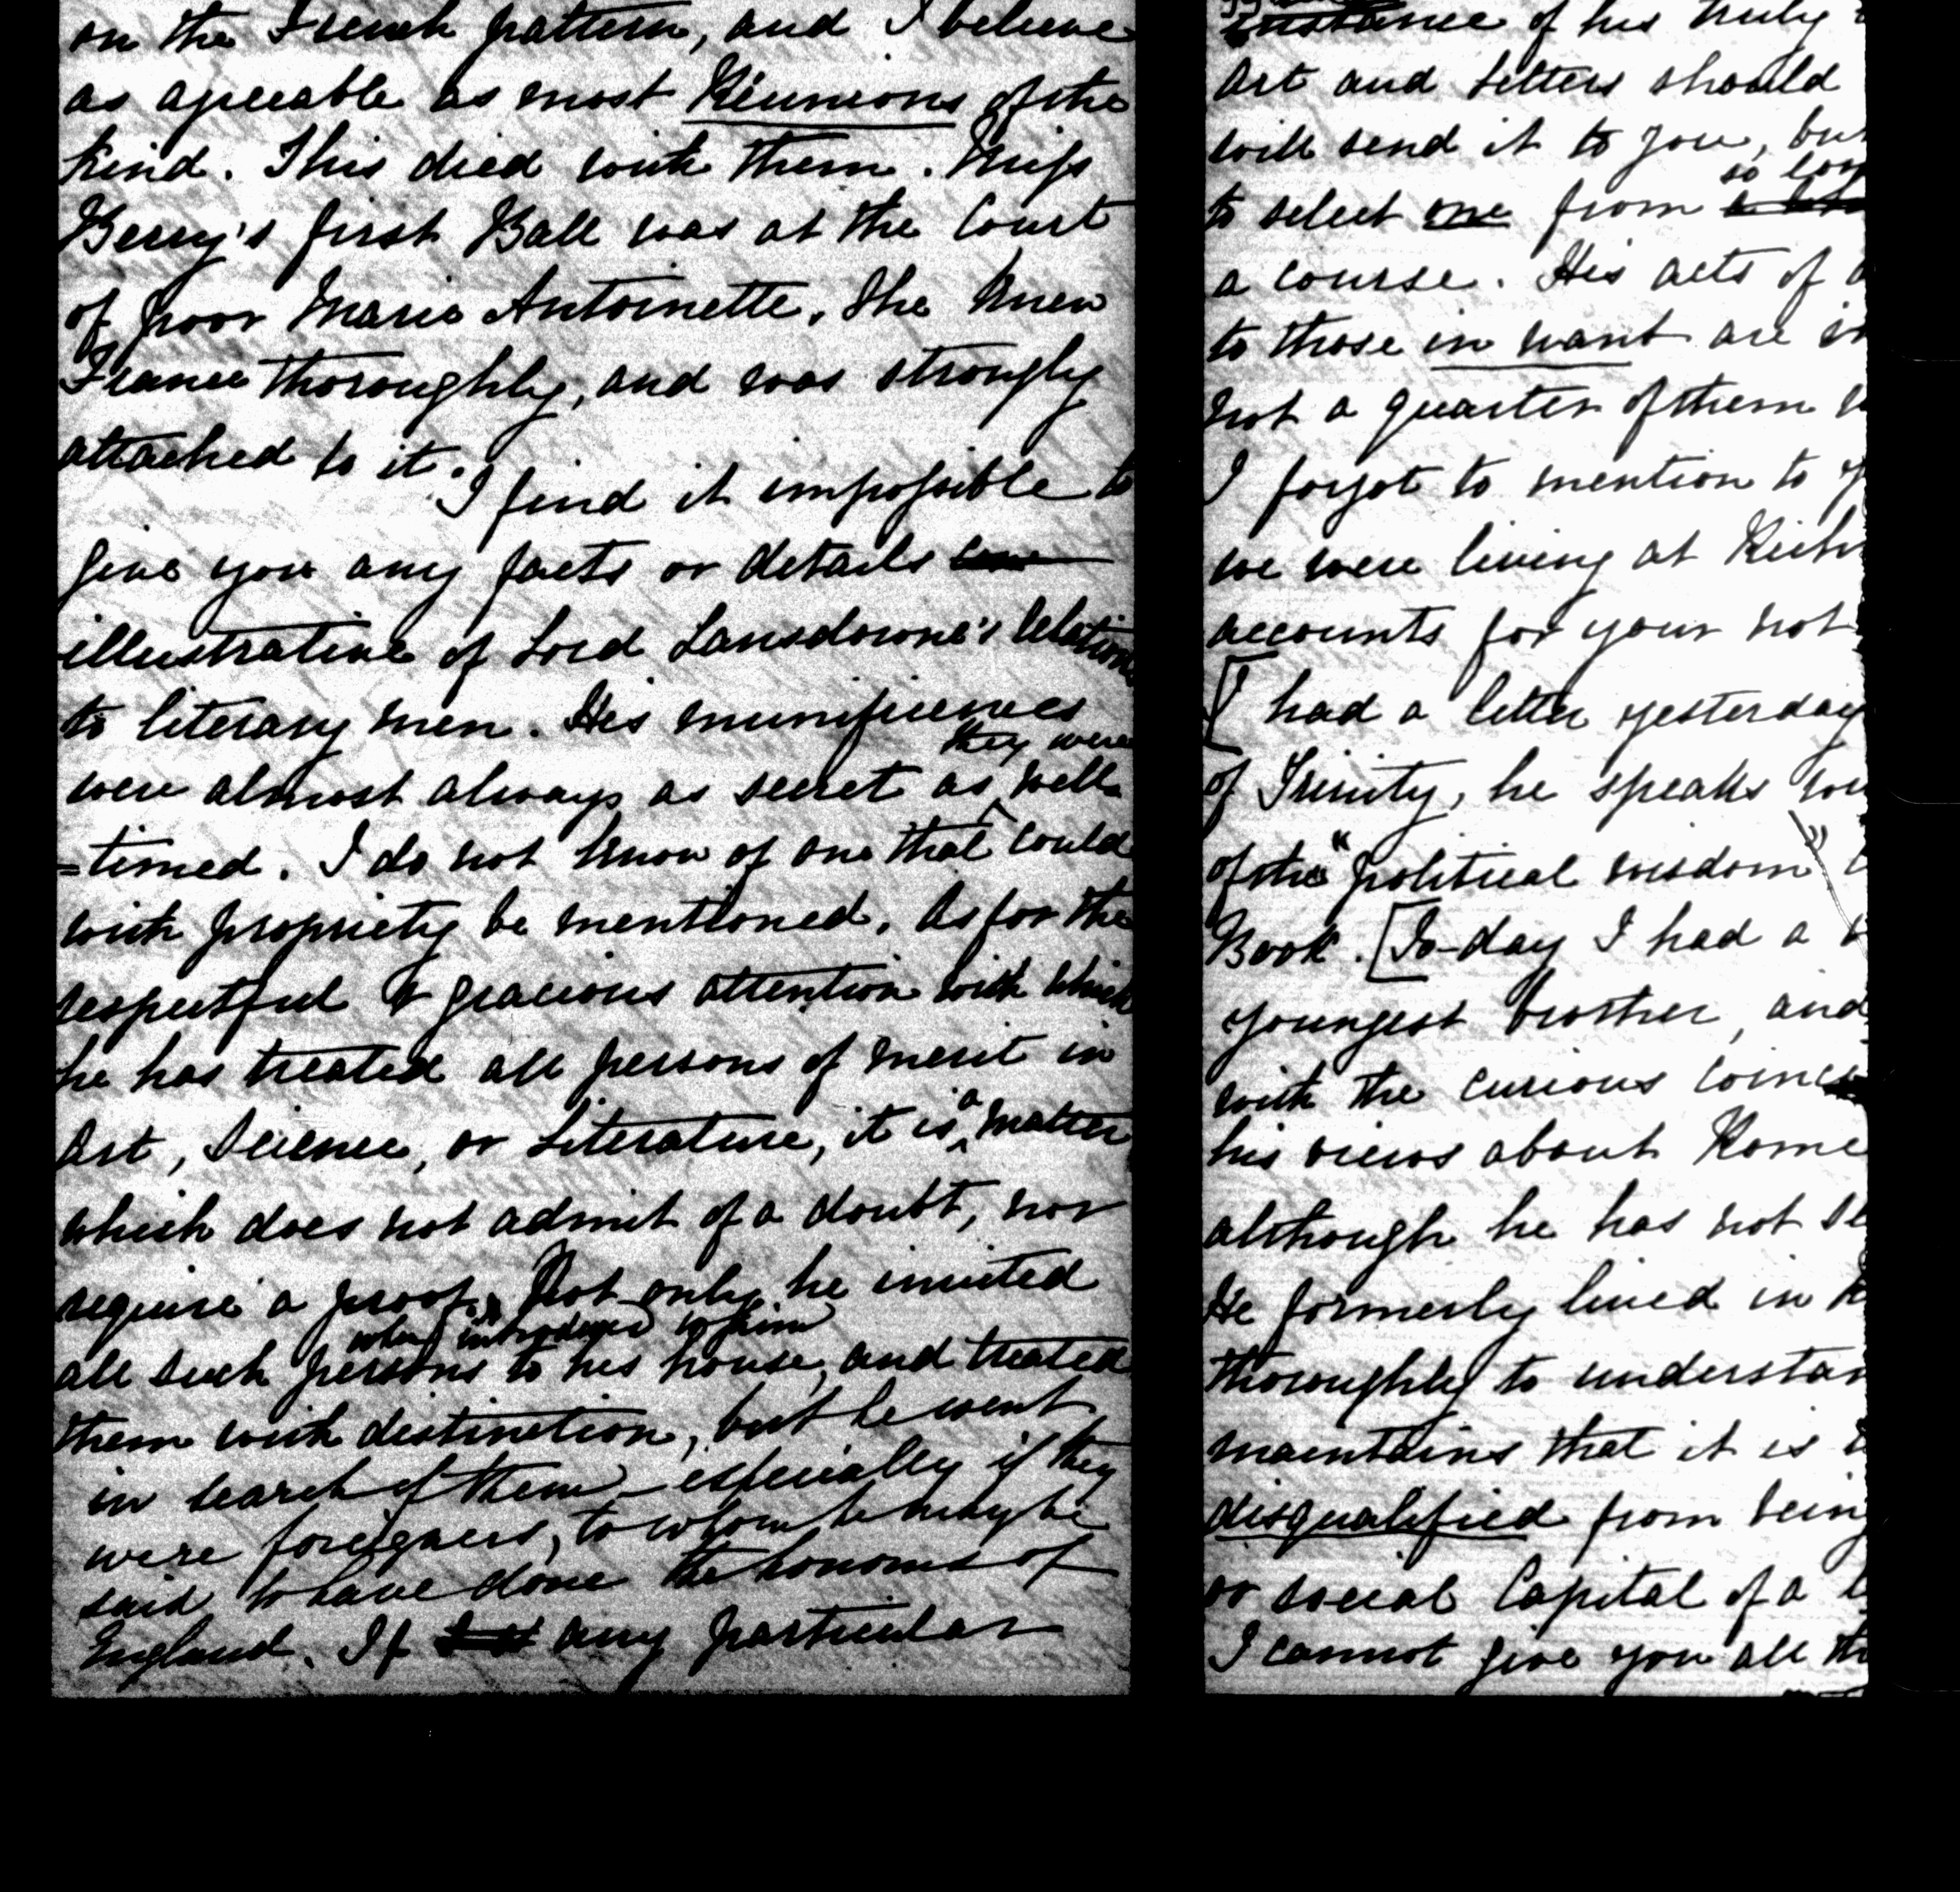 on the French pattern, and I believe
as agreeable as most Réunions of the
kind. This died with them. Miss
Berry's first Ball was at the Court
of poor Marie Antoinette. She knew
France thoroughly, and was strongly
attached to it.
I find it impossible to
give you any facts or details
illustrative of Lord Lansdowne's relations
to literary men. His munificences
they were
were almost always as secret as well
=timed. I do not know of one that could
with propriety be mentioned. As for the
respectful & gracious attention with which
he has treated all persons of merit in
Art, Science, or Literature, it is a matter
which does not admit of a doubt, nor
require a proof. Not only he invited
when introduced to him
all such persons to his house, and treated
them with distinction, but he went
in search of them – especially if they
were foreigners, to whom he may be
said to have done the honours of
England. If any particular
instance of his truly
Art and Letters should
will send it to you, but
so long
to select one from
a course. His acts of
to those in want are
not a quarter of them
I forgot to mention to
we were living at Rich
accounts for your not
[I had a letter yesterday
of Trinity, he speaks
of the "political wisdom"
Book. [To-day I had a
youngest brother, and
with the curious coinci
his views about Rome
although he has not
He formerly lived in
thoroughly to understan
maintains that it is
disqualified from being
or social Capital of a
I cannot give you all th